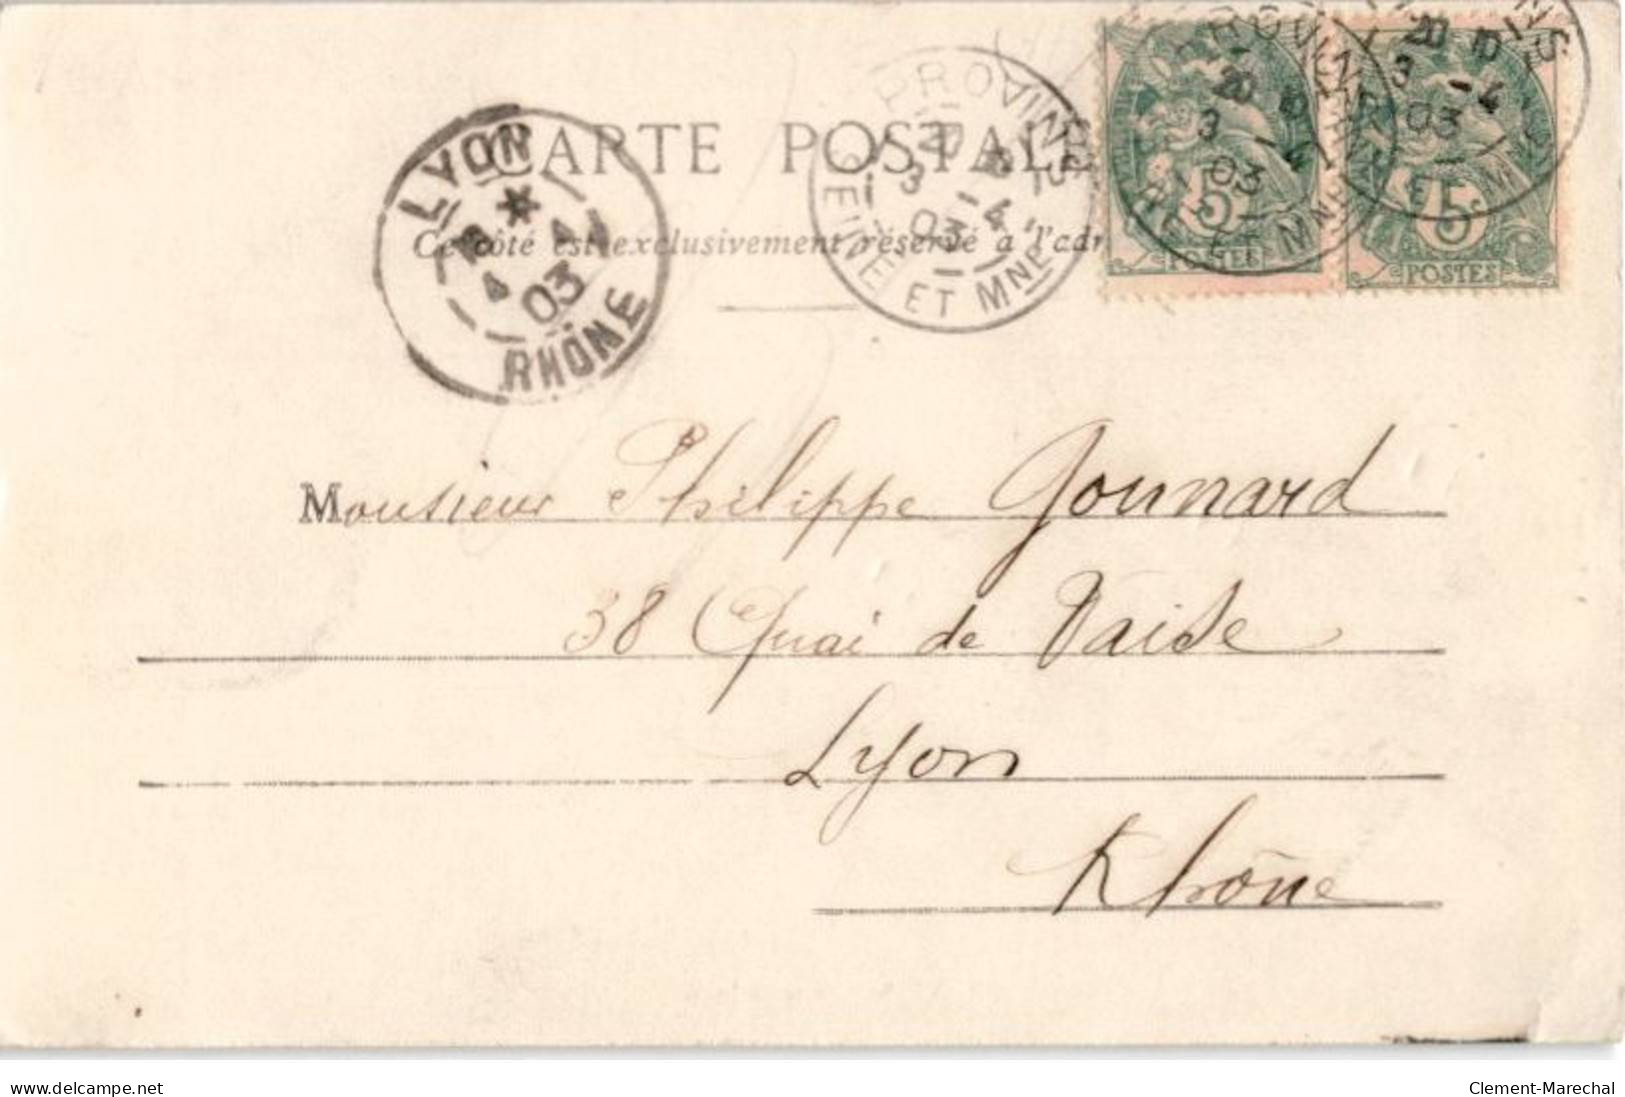 CARTE POSTALE
Ce côté est exclusivement réservé à l'adr
PROVINS
20 10
3 -4
03
SEINE ET MNE
LYON
4
03
RHÔNE
5c
POSTES
5c
POSTES
Monsieur Philippe Gounard
38 Quai de Vaise
Lyon
Rhône
delcampe.net
Clement-Marechal